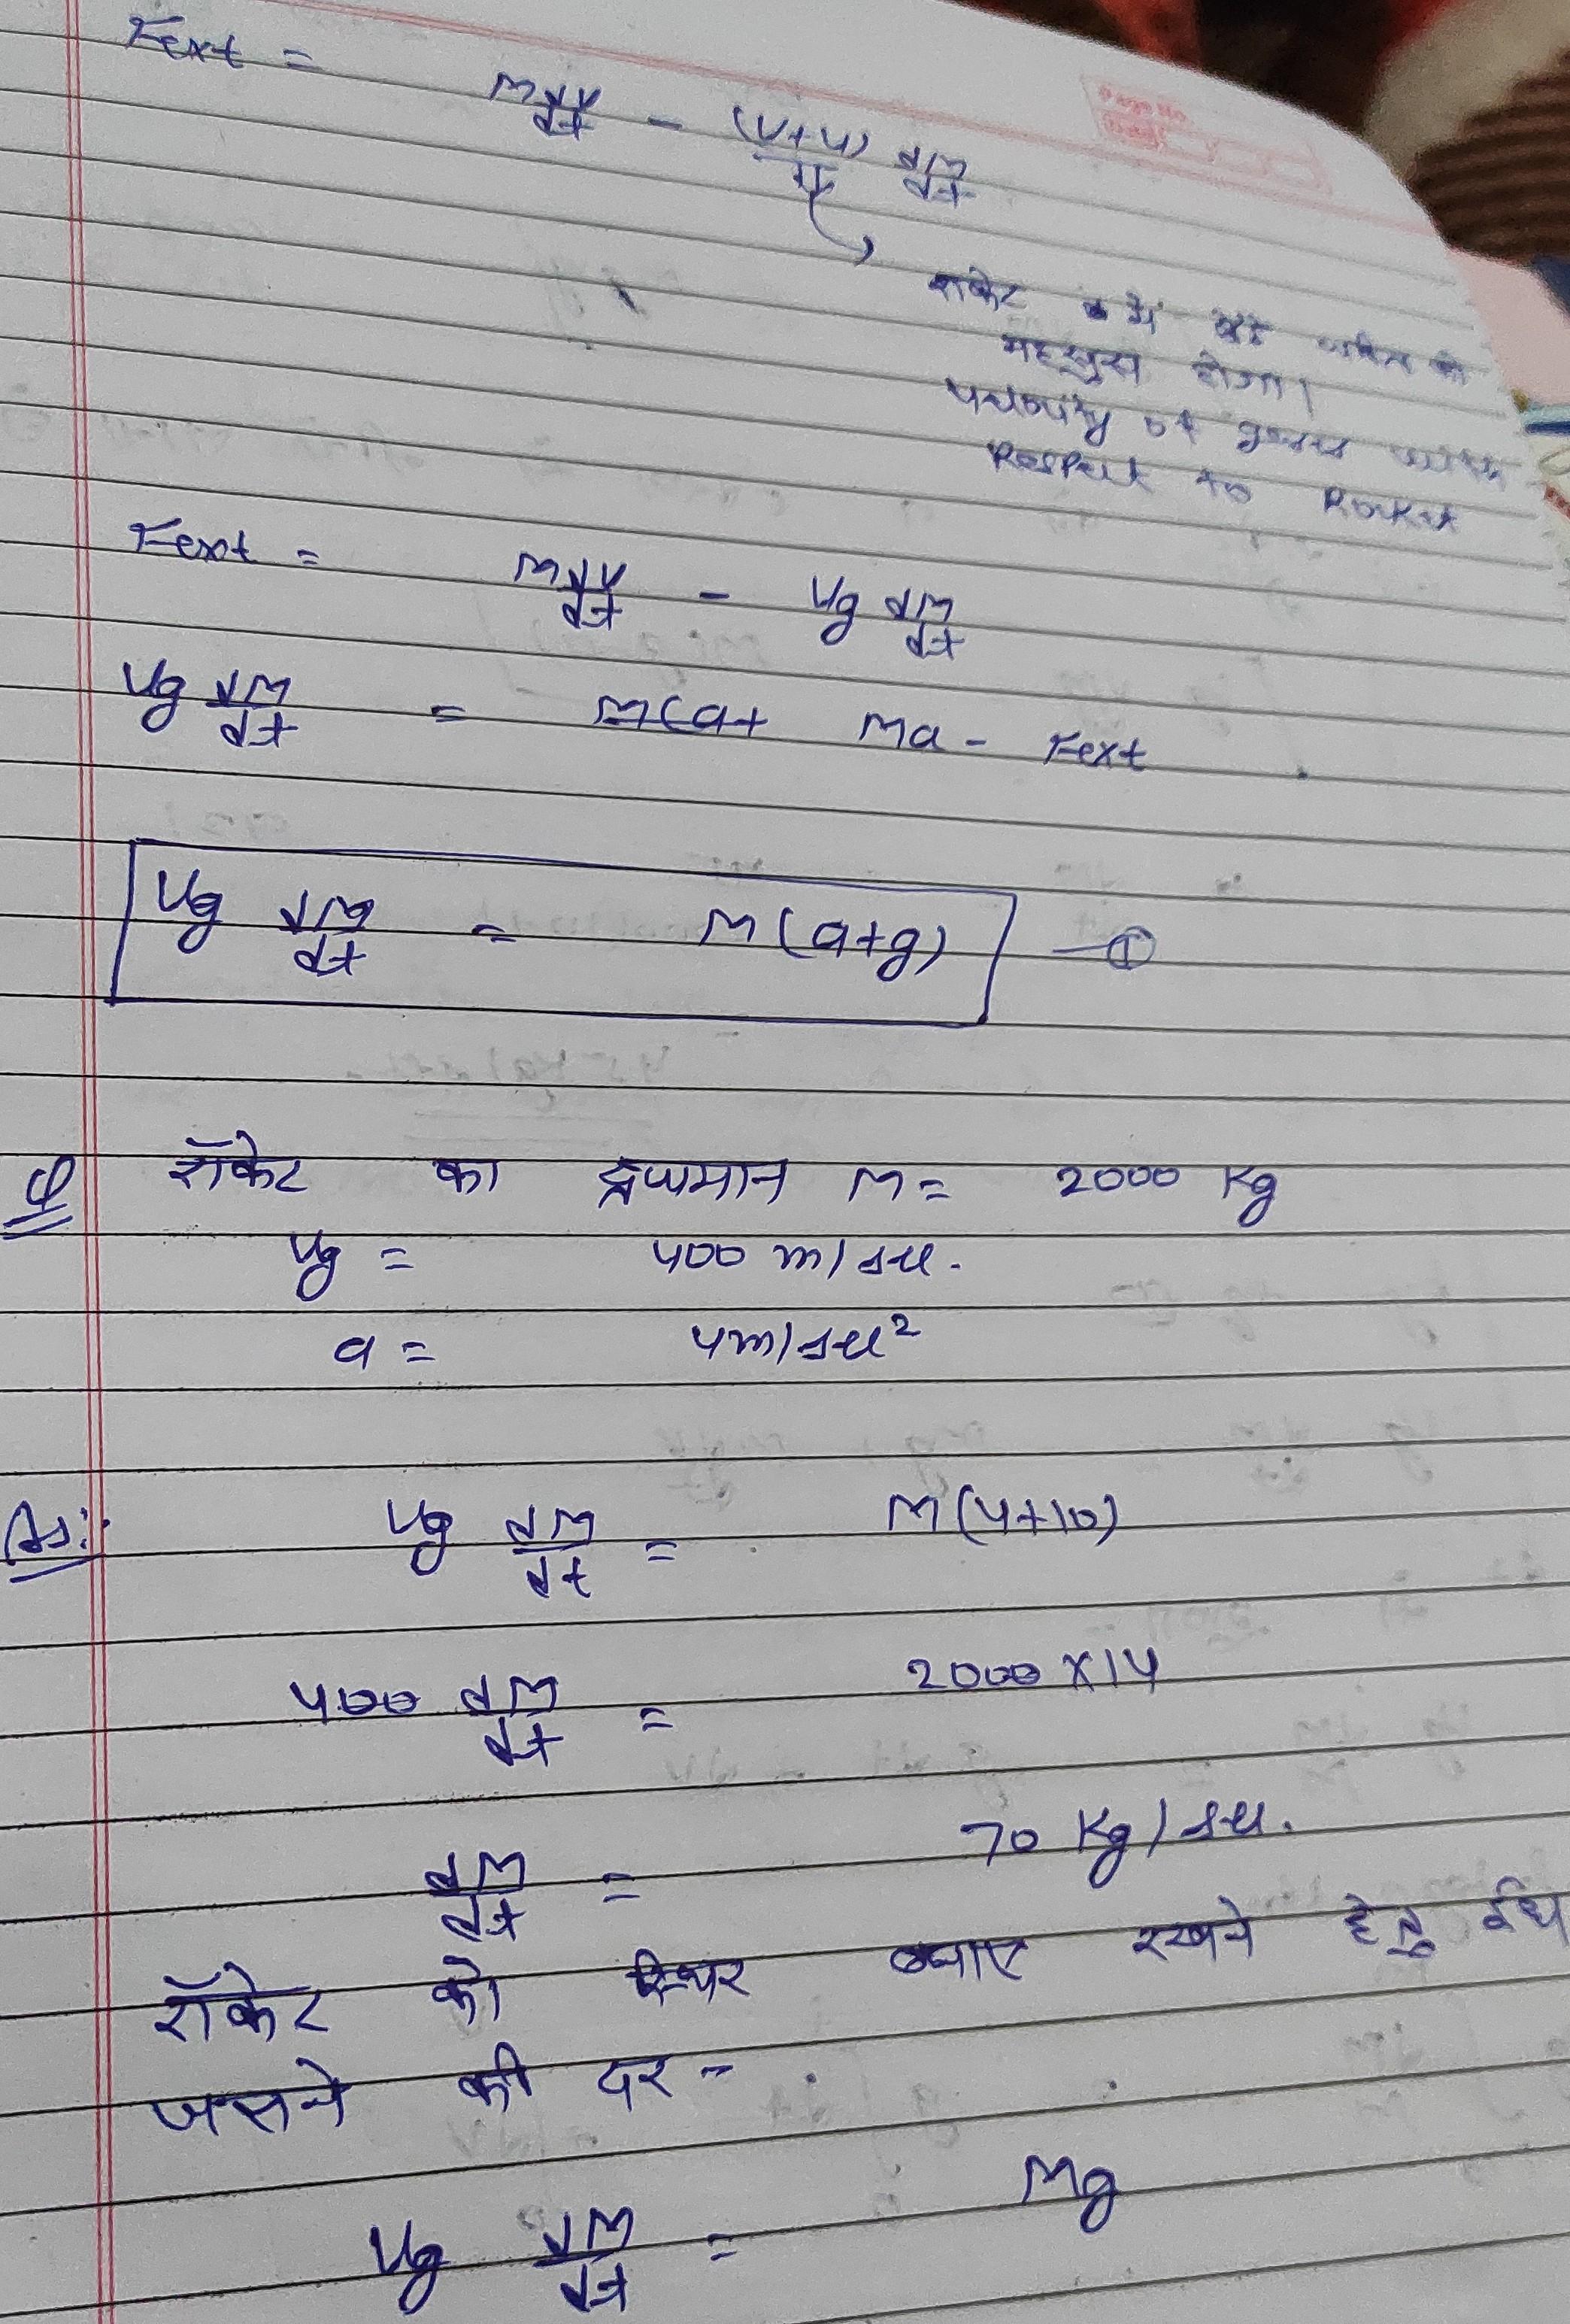 Fext = M dv/dt - (v+u) dM/dt
रॉकेट में बैठे व्यक्ति को
महसूस होगा।
velocity of gases with
Respect to Rocket
Fext = M dv/dt - Vg dM/dt
Vg dM/dt = M(a+ Ma - Fext
Vg dM/dt = M(a+g) — ①
Q रॉकेट का द्रव्यमान M = 2000 Kg
Vg = 400 m/sec.
a = 4m/sec²
Ans:- Vg dM/dt = M(4+10)
400 dM/dt = 2000 x 14
dM/dt = 70 Kg/sec.
रॉकेट को स्थिर बनाए रखने हेतु ईंध
जलने की दर -
Vg dM/dt = Mg